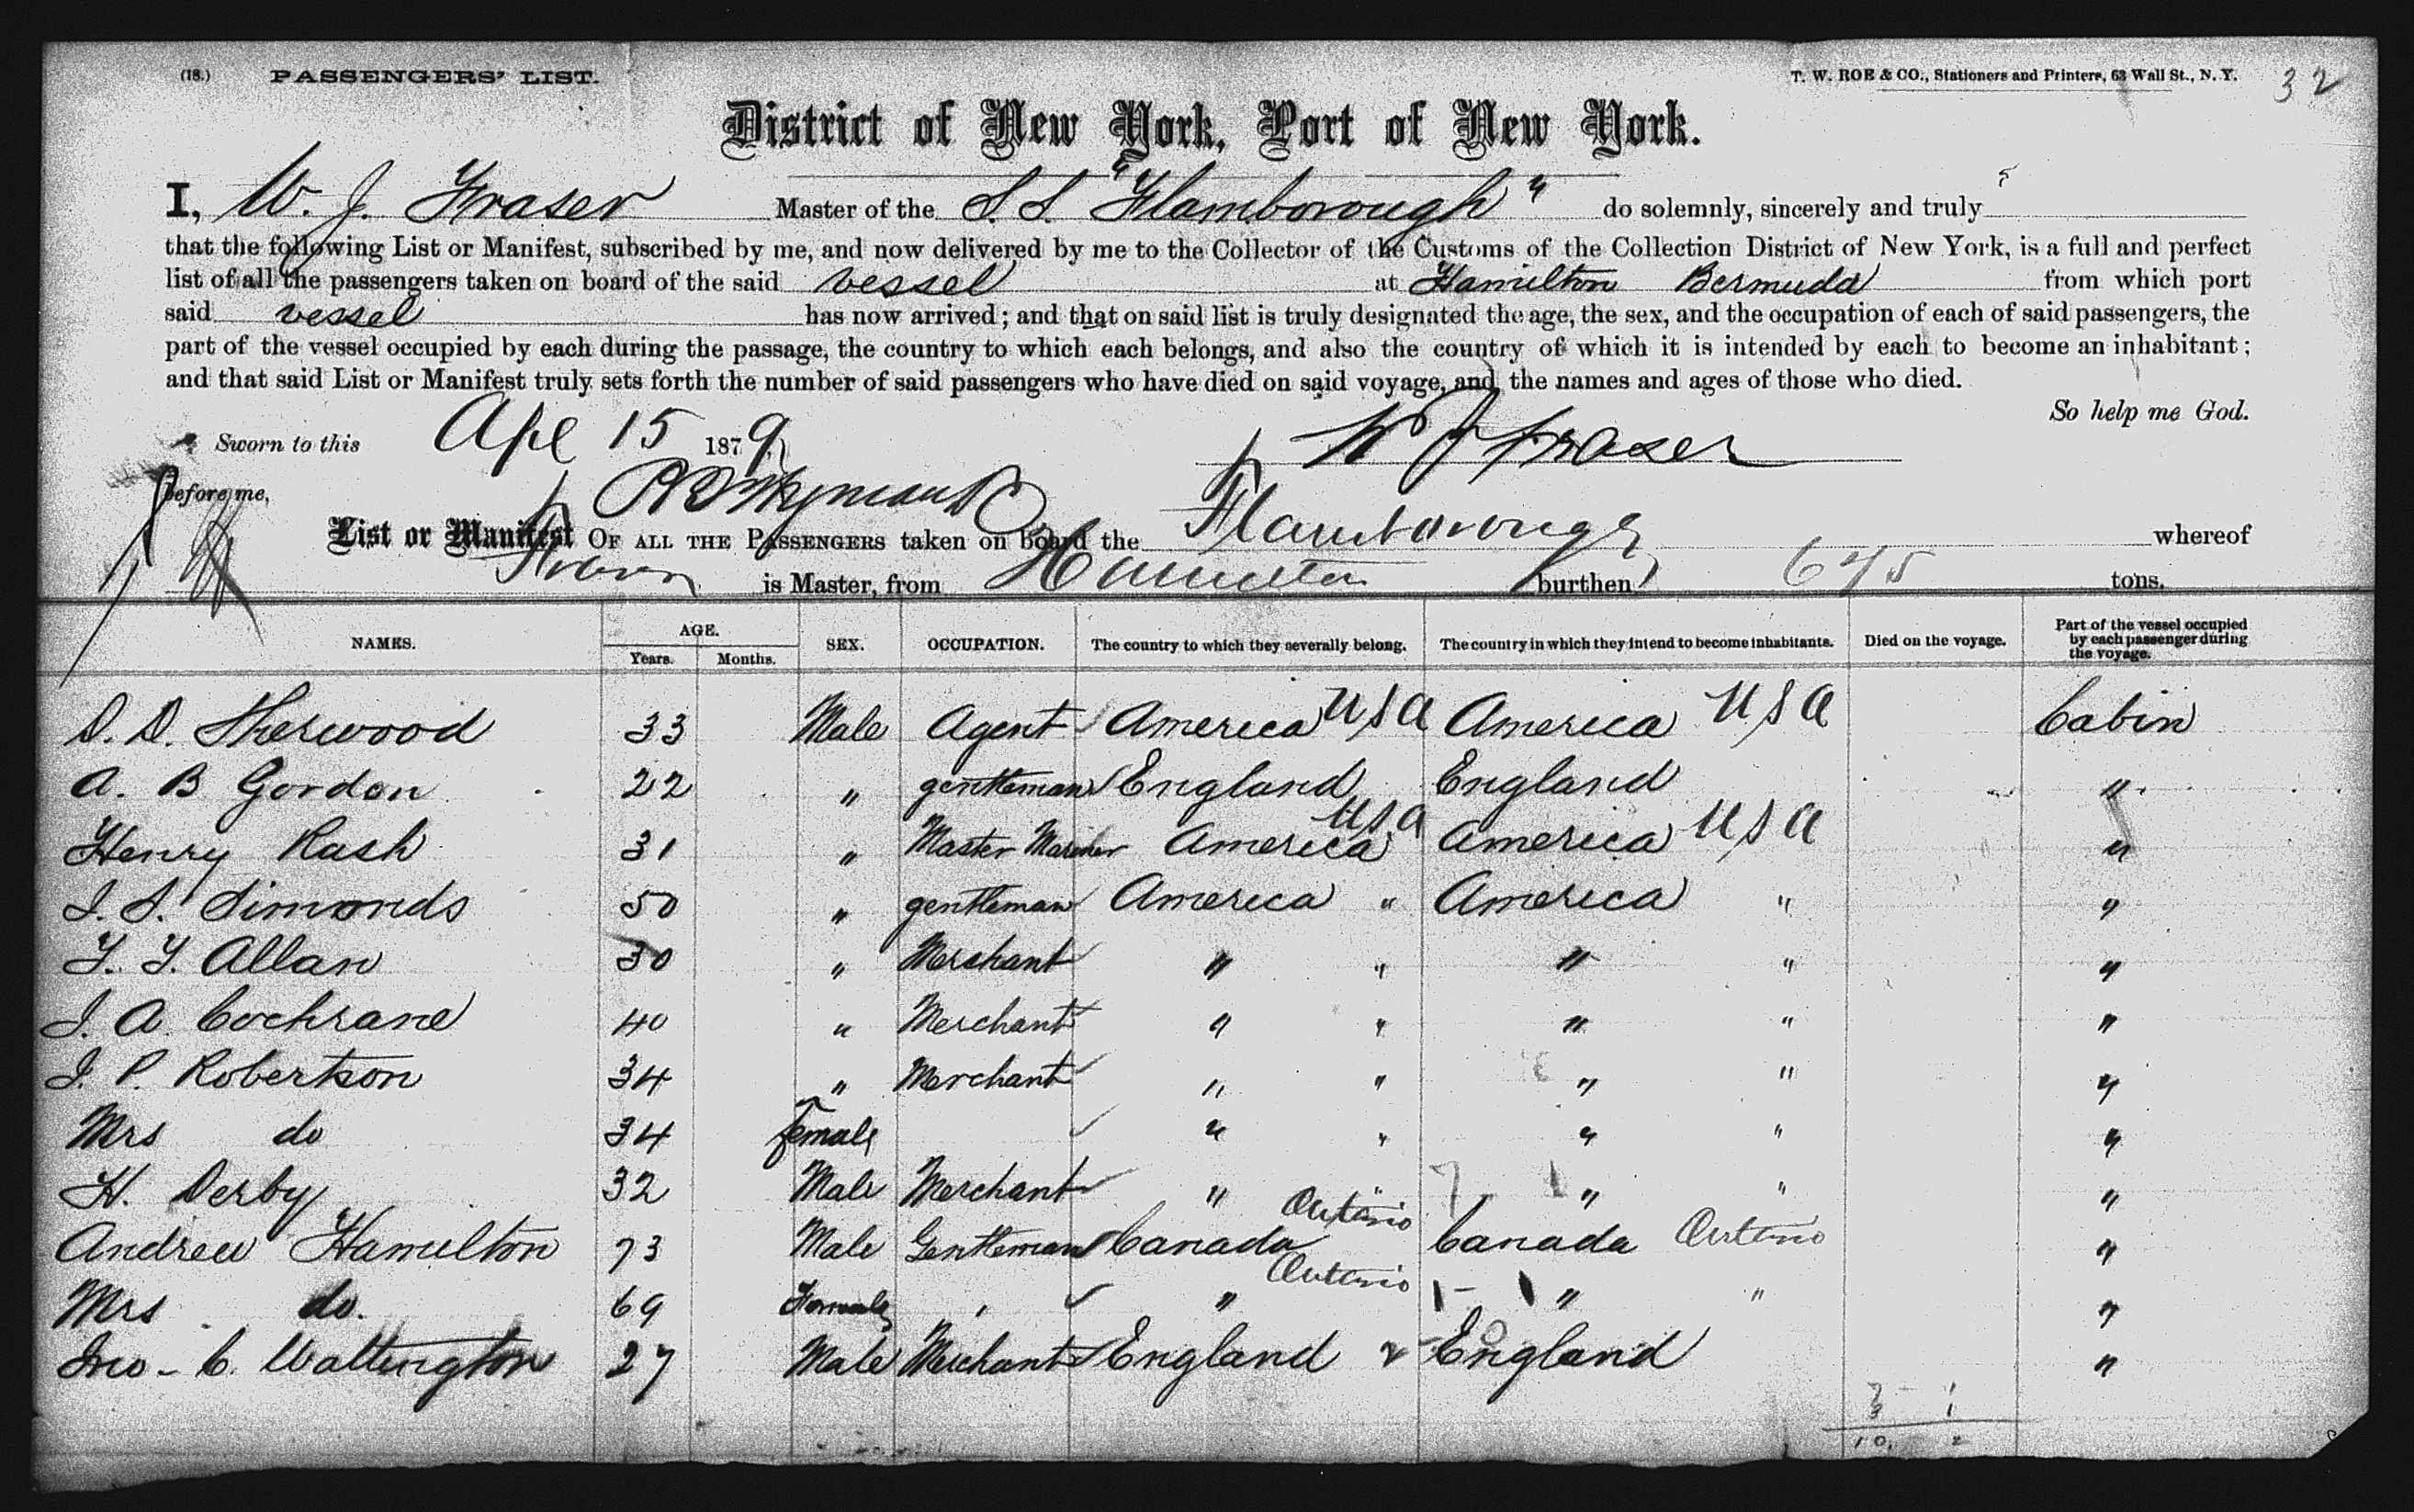 (18.) PASSENGERS' LIST. T. W. ROE & CO., Stationers and Printers, 63 Wall St., N. Y. 32
District of New York, Port of New York.
I, W. J. Fraser Master of the S.S. "Flamborough" do solemnly, sincerely and truly
that the following List or Manifest, subscribed by me, and now delivered by me to the Collector of the Customs of the Collection District of New York, is a full and perfect
list of all the passengers taken on board of the said vessel at Hamilton Bermuda from which port
said vessel has now arrived; and that on said list is truly designated the age, the sex, and the occupation of each of said passengers, the
part of the vessel occupied by each during the passage, the country to which each belongs, and also the country of which it is intended by each to become an inhabitant;
and that said List or Manifest truly sets forth the number of said passengers who have died on said voyage, and the names and ages of those who died.
So help me God.
Sworn to this Apl 15 1879 W J Fraser
Before me,
List or Manifest OF ALL THE PASSENGERS taken on board the Flamborough whereof
Fraser is Master, from Hamilton burthen tons.
NAMES. AGE. Years. Months. SEX. OCCUPATION. The country to which they severally belong. The country in which they intend to become inhabitants. Died on the voyage. Part of the vessel occupied by each passenger during the voyage.
D. D. Sherwood 33 Male Agent America USA America USA Cabin
A. B Gordon 22 " gentleman England England "
Henry Rash 31 " Master Mariner America USA America USA "
I. S. Simonds 50 " gentleman America " America " "
F. F. Allan 30 " Merchant " " " " "
J. A. Cochrane 40 " Merchant " " " " "
J. P. Robertson 34 " Merchant " " " " "
Mrs do 34 Female " " " " "
H. Derby 32 Male Merchant " " " " "
Andrew Hamilton 73 Male Gentleman Canada Ontario Canada Ontario "
Mrs do. 69 Female " Ontario " " "
Jno - C. Wattington 27 Male Merchant England England "
7 1
3 1
10 2